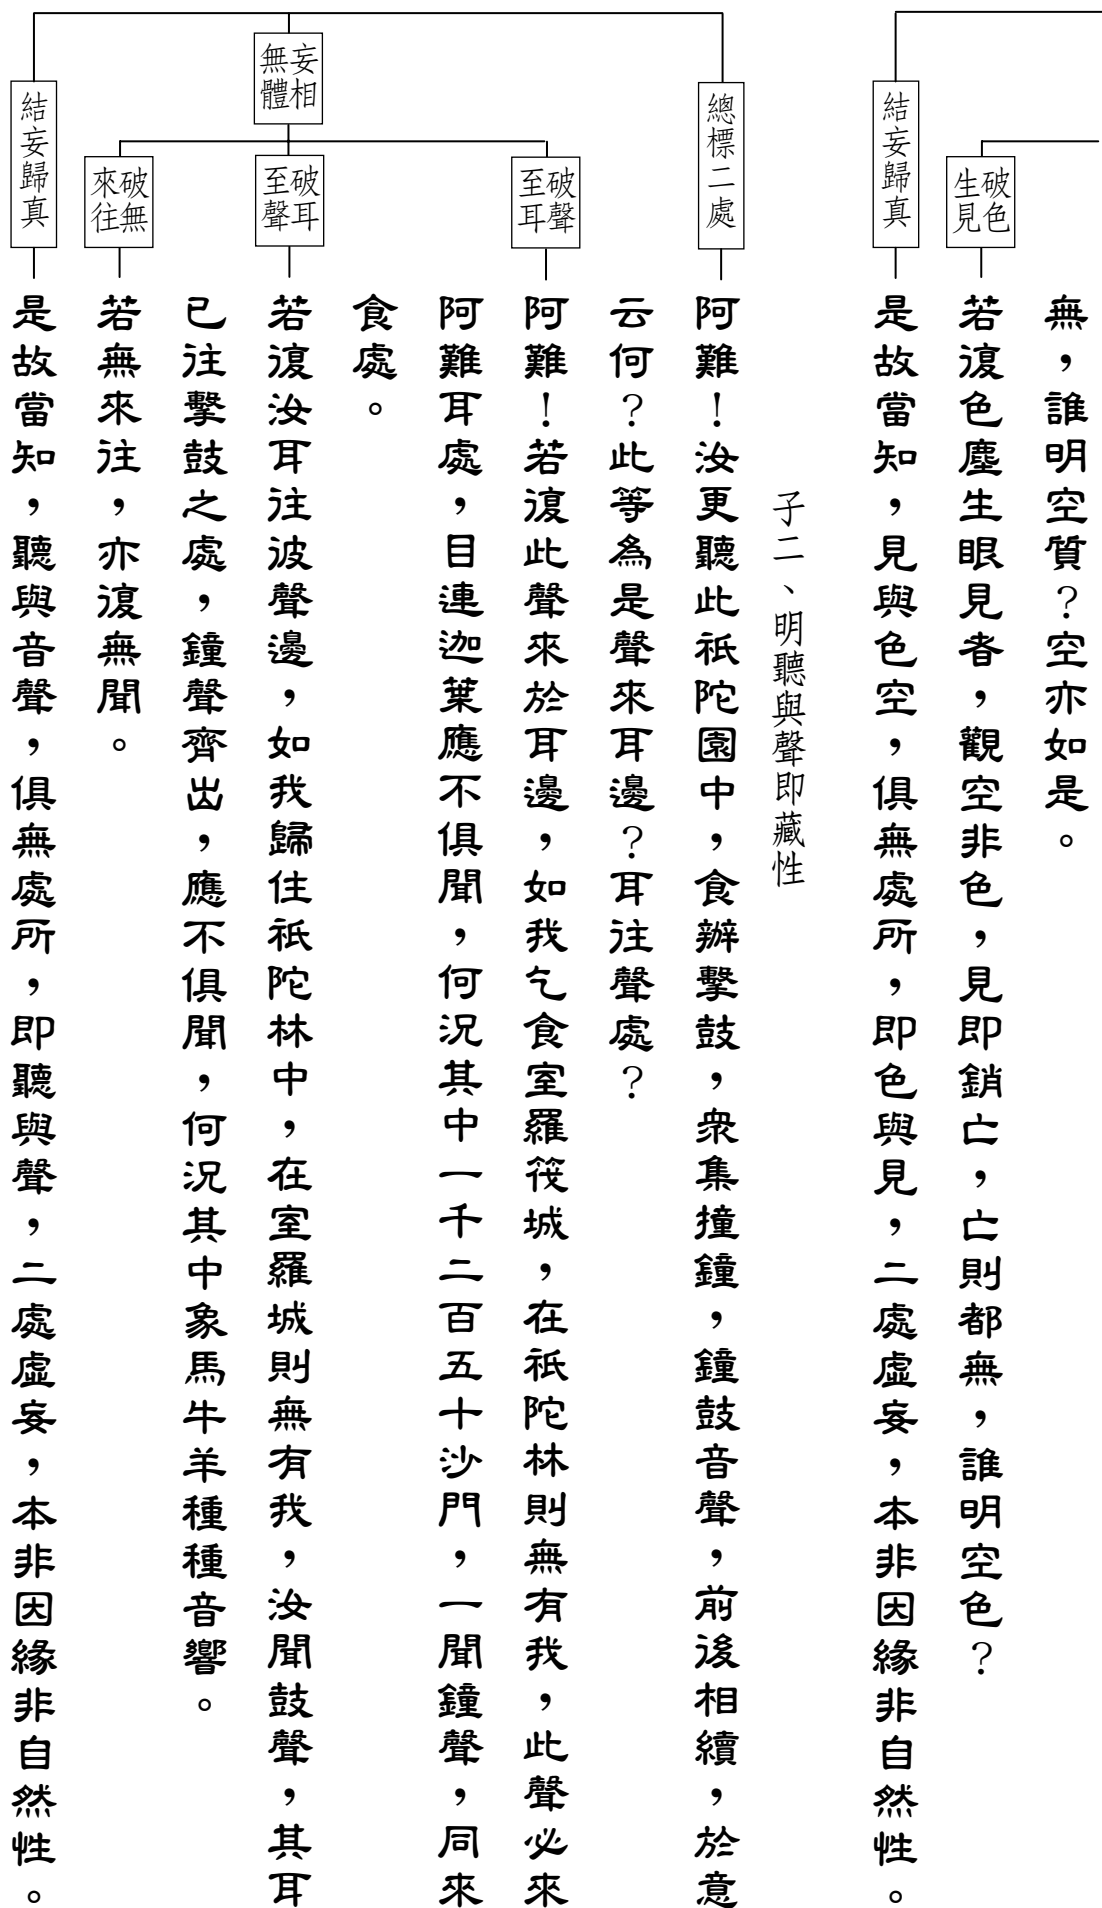 無，誰明空質？空亦如是。
破色
生見
若復色塵生眼見者，觀空非色，見即銷亡，亡則都無，誰明空色？
結妄歸真
是故當知，見與色空，俱無處所，即色與見，二處虛妄，本非因緣非自然性。
子二、明聽與聲即藏性
總標二處
阿難！汝更聽此祇陀園中，食辦擊鼓，眾集撞鐘，鐘鼓音聲，前後相續，於意
云何？此等為是聲來耳邊？耳往聲處？
妄相
無體
破聲
至耳
阿難！若復此聲來於耳邊，如我乞食室羅筏城，在祇陀林則無有我，此聲必來
阿難耳處，目連迦葉應不俱聞，何況其中一千二百五十沙門，一聞鐘聲，同來
食處。
破耳
至聲
若復汝耳往波聲邊，如我歸住祇陀林中，在室羅城則無有我，汝聞鼓聲，其耳
已往擊鼓之處，鐘聲齊出，應不俱聞，何況其中象馬牛羊種種音響。
破無
來往
若無來往，亦復無聞。
結妄歸真
是故當知，聽與音聲，俱無處所，即聽與聲，二處虛妄，本非因緣非自然性。